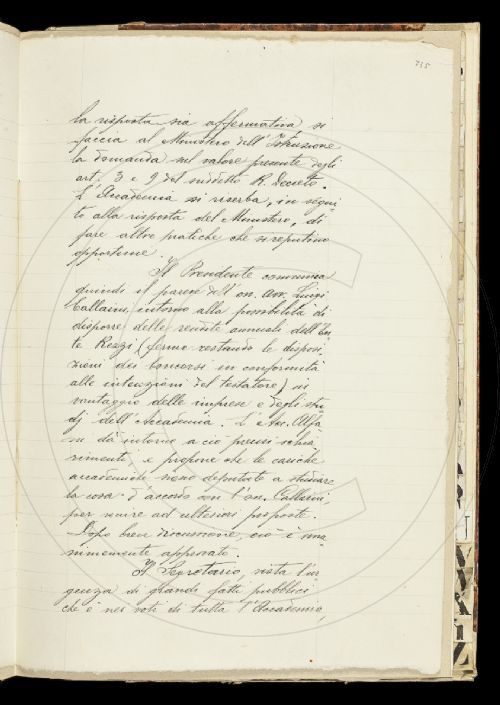 735
la risposta sia affermativa si
faccia al Ministero dell'Istruzione
la domanda sul valore presente degli
art. 3 e 9 del suddetto R. Decreto.
L'Accademia si riserba, in segui
to alla risposta del Ministero, di
fare altre pratiche che si reputino
opportune.
Il Presidente comunica
quindi il parere dell'on. avv. Luigi
Callaini intorno alla possibilità di
disporre delle rendite annuali dell'En
te Rezzi (ferme restando le disposi
zioni dei concorsi in conformità
alle intenzioni del testatore) in
vantaggio delle imprese e degli stu
dj dell'Accademia. L'Arc. Alfa
ni dà intorno a ciò precisi schia
rimenti, e propone che le cariche
accademiche siano deputate a studiare
la cosa d'accordo con l'on. Callaini,
per venire ad ulteriori proposte.
Dopo breve discussione, ciò è una
nimemente approvato.
Il Segretario, vista l'ur
genza di grandi fatti pubblici
che è nei voti di tutta l'Accademia,